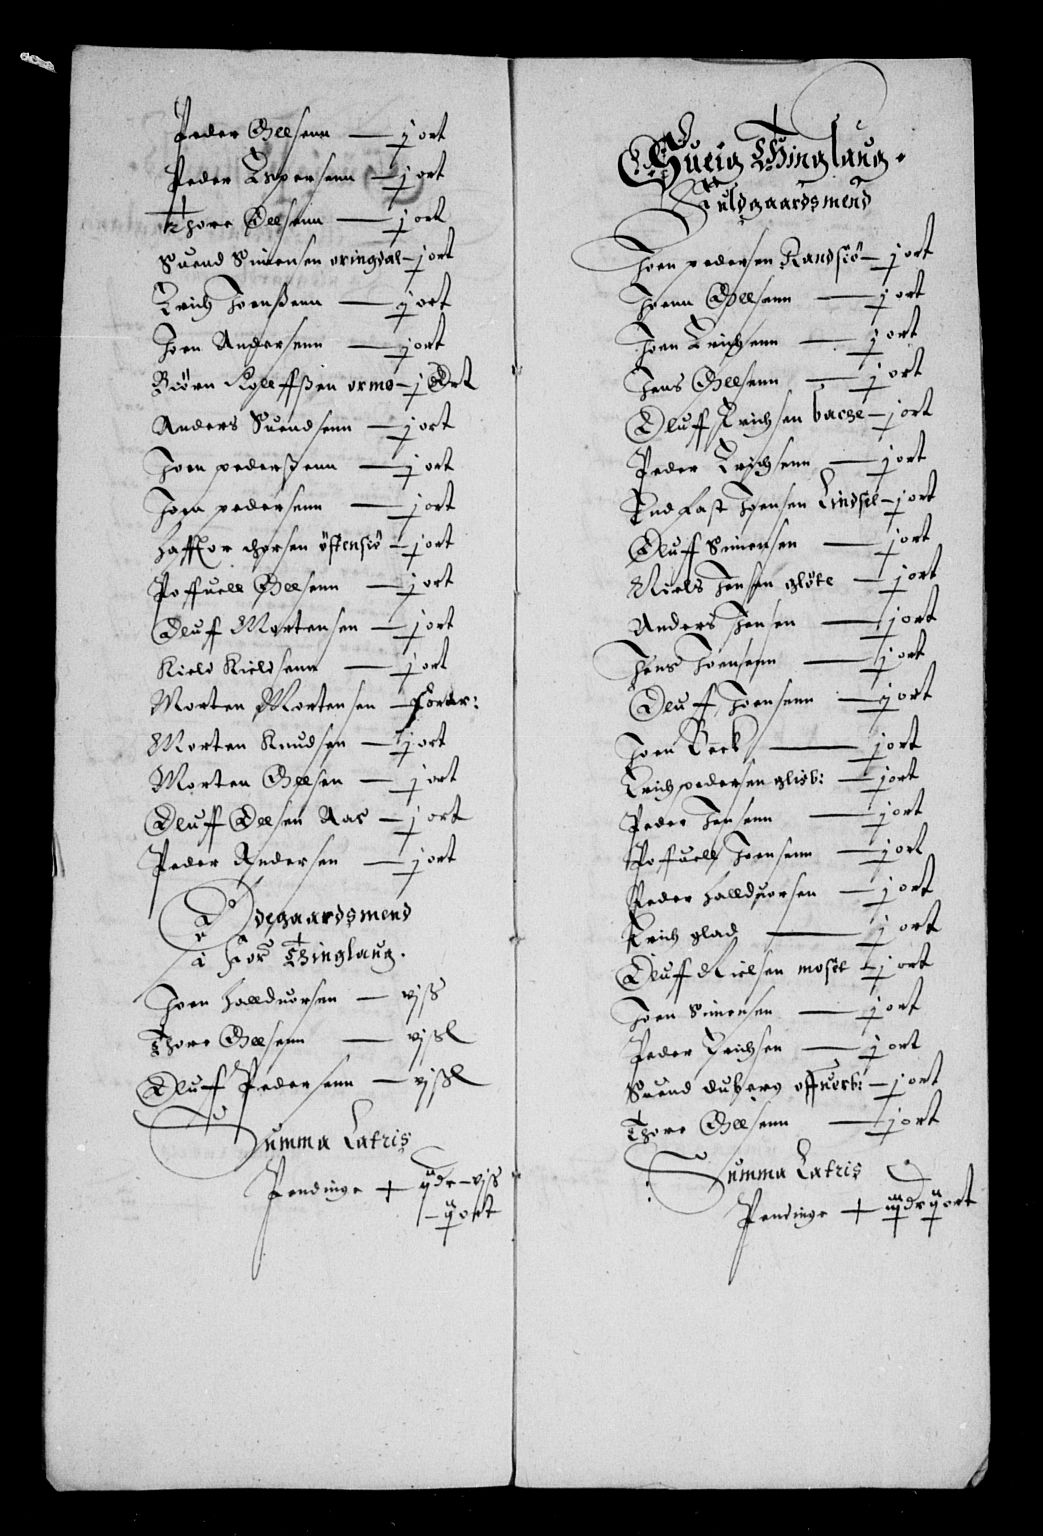 Peder Oelsenn — j ort
Peder Espersenn — j ort
Thore Oelsenn — j ort
Suend Simensen oringdal — j ort
Erich Joenßenn — j ort
Joen Andersenn — j ort
Biörn Rolffßen ormo — j Ort
Anders Suendsenn — j ort
Joen pederßenn — j ort
Joen pedersenn — j ort
Haffuor thorsen östensiö — j ort
Poffuell Oelsenn — j ort
Oluf Mortensen — j ort
Kield Kieldsenn — j ort
Morten Mortensen — forar:
Morten Knudsen — j ort
Morten Oelsen — j ort
Oluff Oelsen Aas — j ort
Peder Andersen — j ort
Ödegaardsmend
i for: Thinglaug.
Joen Halluorsen — vjß
Thore Oelsenn — vjßl
Oluff Pedersenn — vjßl
Summa Lateris
Pendinge + ijdr — vjß
— ij ort
Sueig Thinglaug.
Fuldgaardsmend
Joen pedersen Randsiö — j ort
Joenn Oelsenn — j ort
Joen Erichsenn — j ort
Jens Oelsenn — j ort
Oluff Erichsen bache — j ort
Peder Erichsenn — j ort
Endfast Joensen Lindsel — j ort
Oluff Simensen — j ort
Niels Jensen glöte — j ort
Anders Jensen — j ort
Jens Joensenn — j ort
Oluff Joensenn — j ort
Joen Beck — j ort
Erich pedersen glisb: — j ort
Peder Jensenn — j ort
Poffuell Joensenn — j ort
Peder Halduorsen — j ort
Erich glad — j ort
Oluff Nielsen moset — j ort
Joen Simensen — j ort
Peder Erichsen — j ort
Suend duberg offuerb: — j ort
Thore Oelsenn — j ort
Summa Lateris
Pendinge + iijdr ij ort